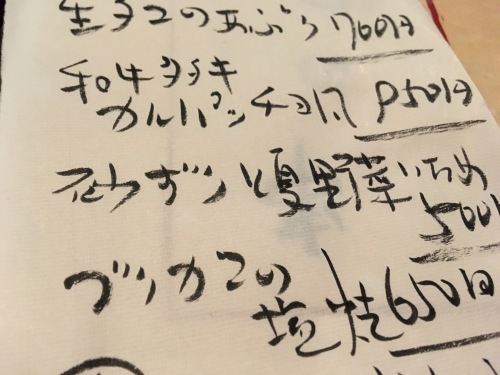 生タコのあぶり 700円
和牛タタキ
カルパッチョ風 950円
砂ズリと夏野菜いため
500円
ブリカマの
塩焼 650円